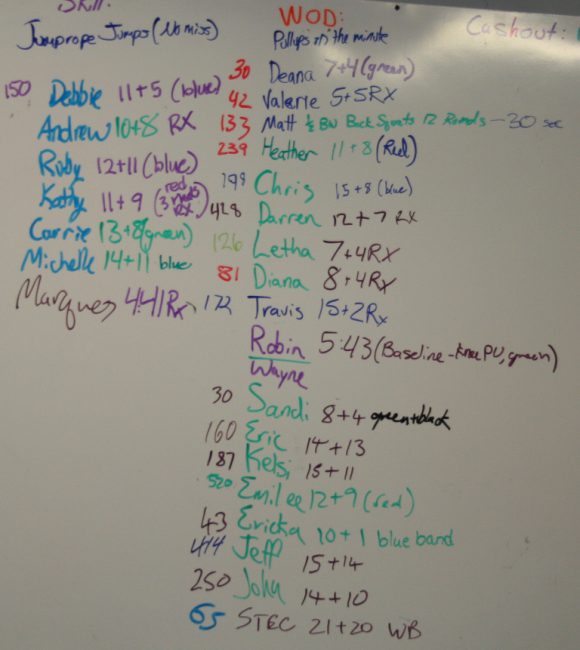 Skill:
Jumprope Jumps (No miss)
150 Debbie 11+5 (blue)
Andrew 10+8 RX
Ruby 12+11 (blue)
Kathy 11+9 (red 3 RX)
Carrie 13+8 (green)
Michelle 14+11 blue
Marques 4:41 Rx
WOD:
Pullups in the minute
30 Deana 7+4 (green)
42 Valerie 5+5 RX
133 Matt ½ BW Back Squats 12 Rounds - 30 sec
239 Heather 11+8 (Red)
198 Chris 15+8 (blue)
428 Darren 12+7 RX
126 Letha 7+4 RX
81 Diana 8+4 RX
172 Travis 15+2 Rx
Robin 5:43 (Baseline - knee PU, green)
Wayne
30 Sandi 8+4 green+black
160 Eric 14+13
187 Kelsi 15+11
520 Emilee 12+9 (red)
43 Ericka 10+1 blue band
414 Jeff 15+14
250 John 14+10
65 STEC 21+20 WB
Cashout: